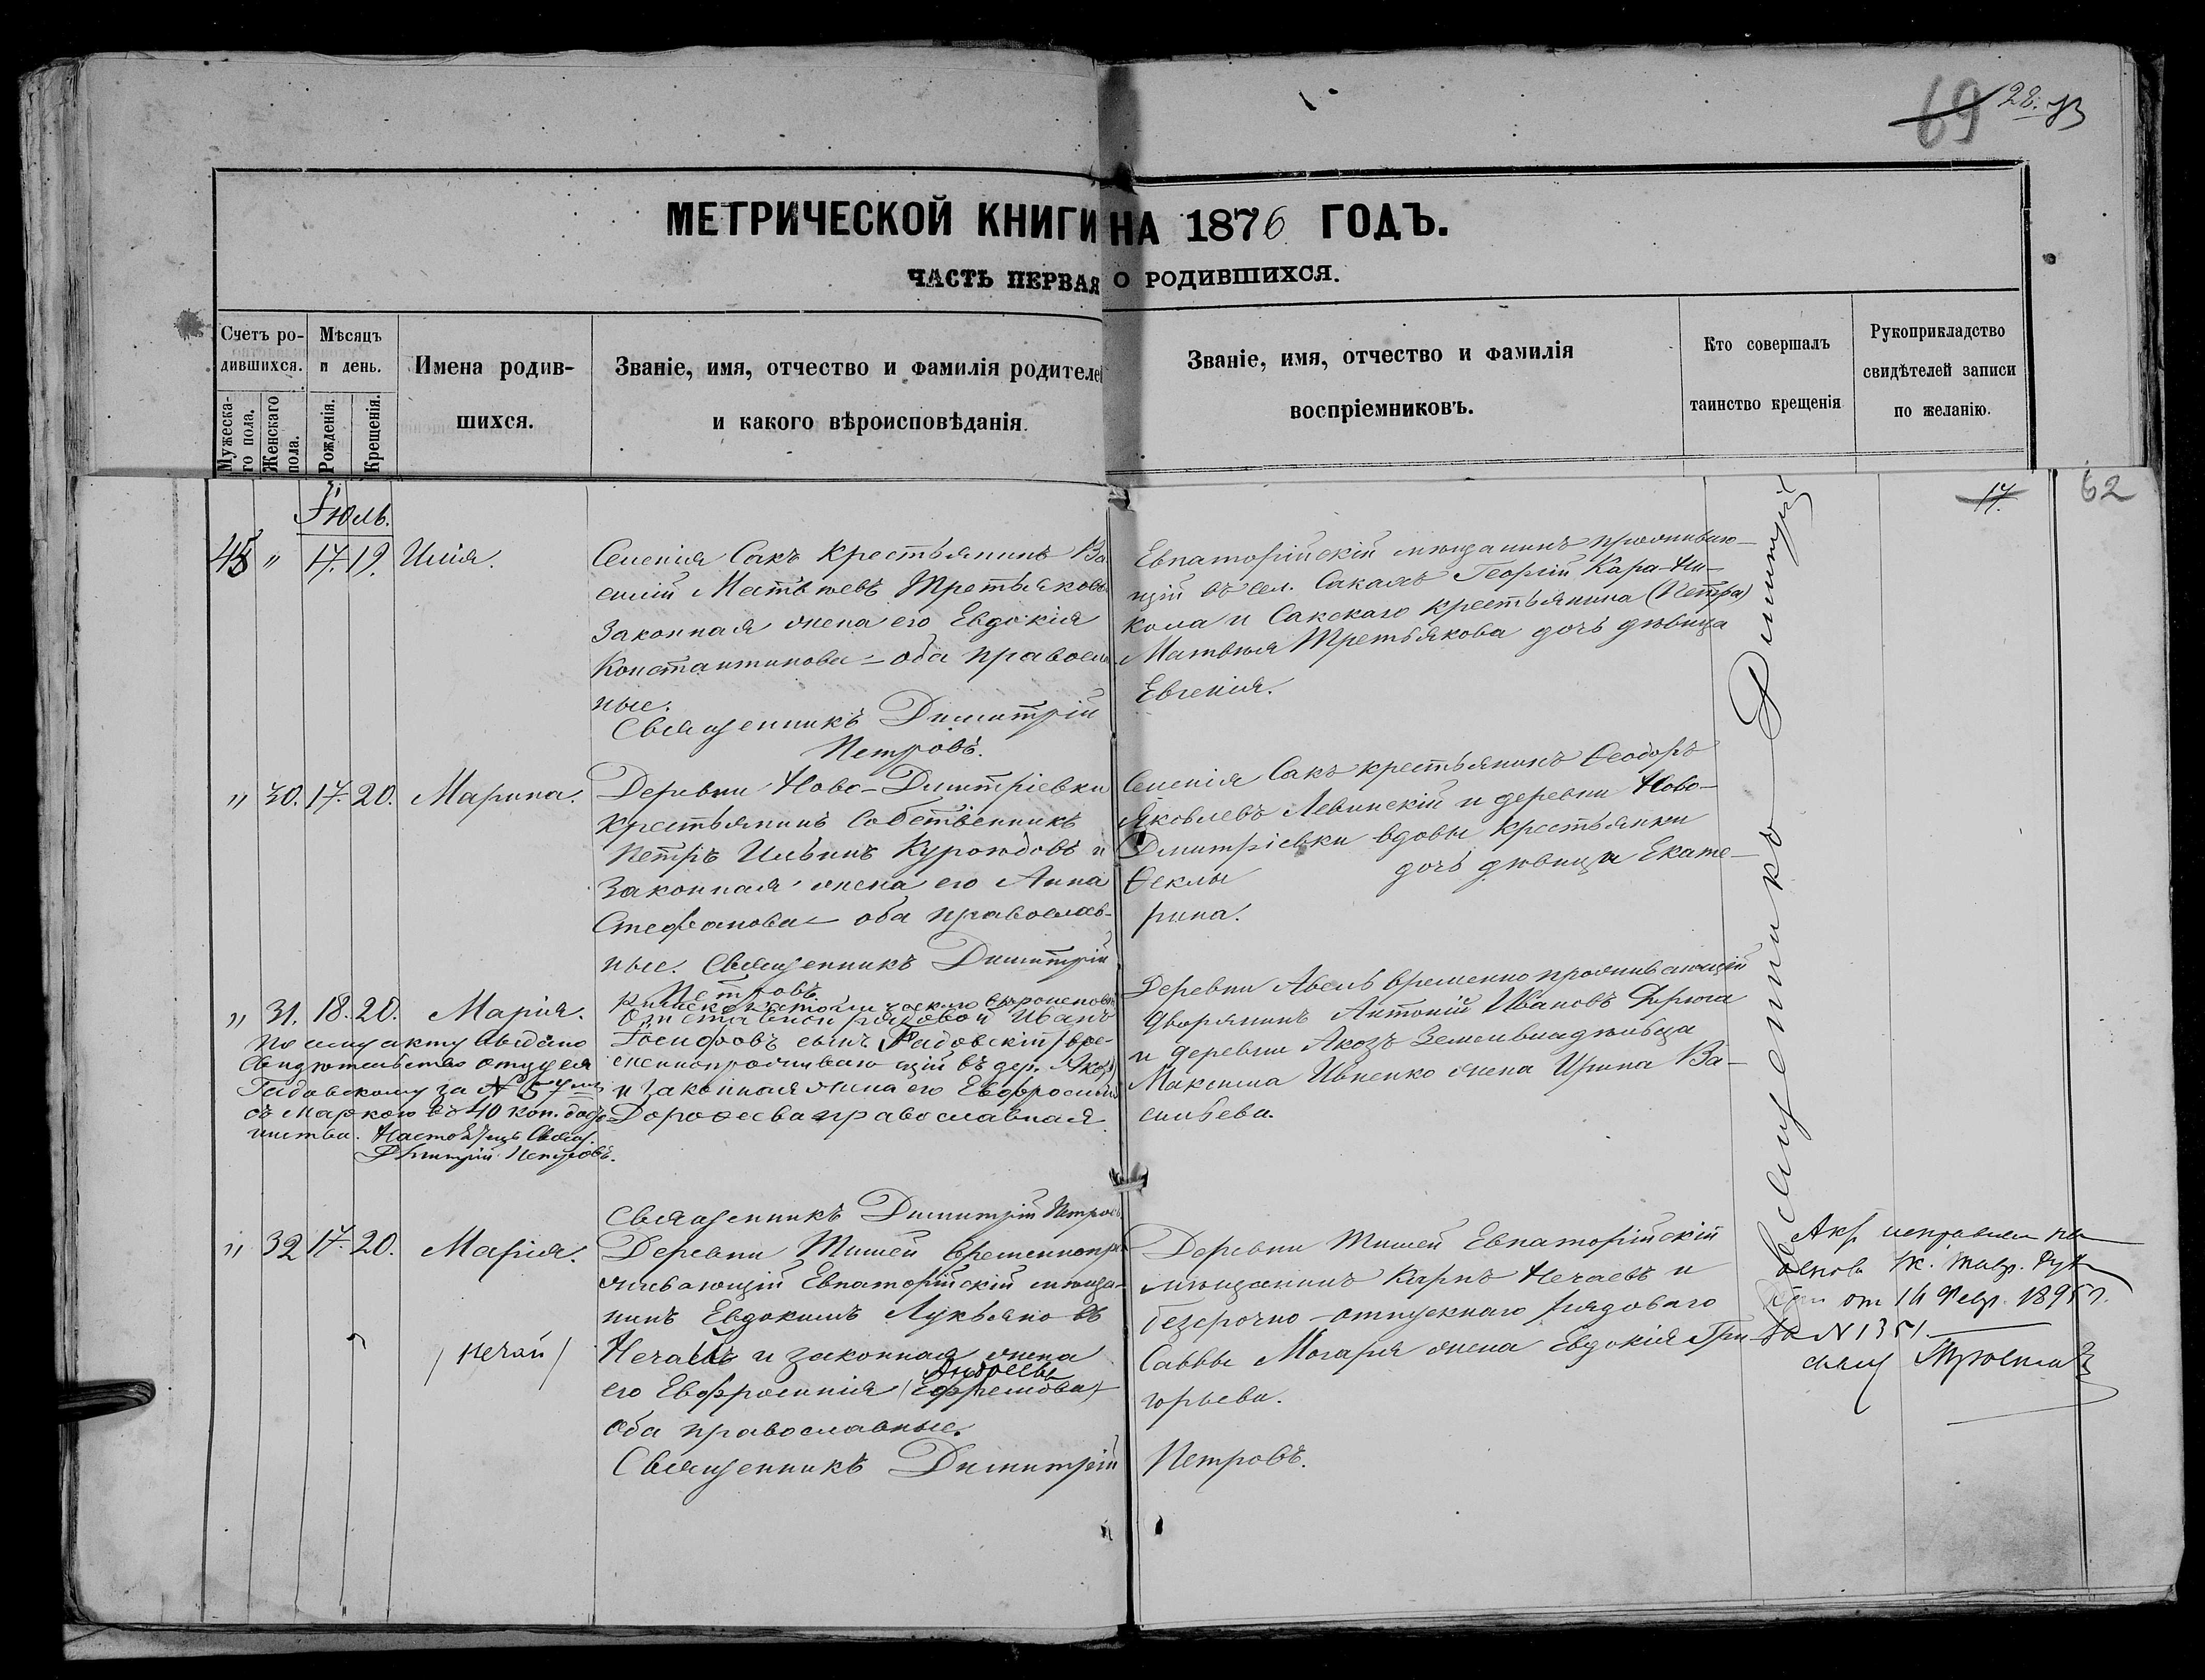 69 28.
МЕТРИЧЕСКОЙ КНИГИ НА 1876 ГОДЪ.
ЧАСТЬ ПЕРВАЯ О РОДИВШИХСЯ.
Счетъ ро-
дившихся.
Мужеска-
го пола.
Женскаго
пола.
Мѣсяцъ
и день.
Рожденія.
Крещенія.
Имена родив-
шихся.
Званіе, имя, отчество и фамилія родителей
и какого вѣроисповѣданія.
Званіе, имя, отчество и фамилія
воспріемниковъ.
Кто совершалъ
таинство крещенія
Рукоприкладство
свидѣтелей записи
по желанію.
17. 62
Іюль.
48 " 17. 19. Илія.
Селенія Сакъ крестьянинъ Ва
силій Матвѣевъ Третьяковъ
Законная жена его Евдокія
Константинова – оба православ
ные.
Священникъ Димитрій
Петровъ.
Евпаторійскій мѣщанинъ проживаю-
щій въ сел. Сакахъ Георгій Кара-Ни-
кола и Сакскаго крестьянина (Петра)
Матвѣя Третьякова дочь дѣвица
Евгенія.
" 30. 17. 20. Марина.
Деревни Ново-Дмитріевки
крестьянинъ Собственникъ
Петръ Ильинъ Курождовъ и
Законная жена его Анна
Стефанова – оба православ-
ные. Священникъ Димитрій
Петровъ.
Селенія Сакъ крестьянинъ Ѳеодоръ
Яковлевъ Левинскій и деревни Ново-
Дмитріевки вдовы крестьянки
Ѳеклы дочь дѣвица Екате-
рина.
" 31. 18. 20. Марія.
По сему акту выдано
Свидѣтельство отцу ея
Гадовскому за № 57
съ маркою въ 40 коп. досто
инства. Священ.
Дмитрій Петровъ.
Отставной рядовой Иванъ
Іосифовъ сынъ Гадовскій /вре-
меннопроживающій въ дер. Акозъ/
и законная жена его Евфросинія
Дороѳеева православная.
Священникъ Димитрій Петровъ.
Деревни Авель временно проживающій
дворянинъ Антоній Ивановъ Дерюга
и деревни Акозъ Землевладѣльца
Максима Ивненко жена Ирина Ва-
сильева.
" 32 17. 20. Марія.
/ Нечай /
Деревни Тишей временнопро
живающій Евпаторійскій мѣща-
нинъ Евдокимъ Лукьяновъ
Нечай и законная жена
Андреева
его Евфросинія (Ефремова)
оба православные.
Священникъ Димитрій Петровъ.
Деревни Тишей Евпаторійскій
мѣщанинъ Карпъ Нечаевъ и
безсрочно-отпускнаго рядоваго
Саввы Могаря жена Евдокія Гри-
горьева.
Священникъ Димитрій
Актъ исправленъ на
основ. от 14 Февр. 1895 г.
за № 1351.